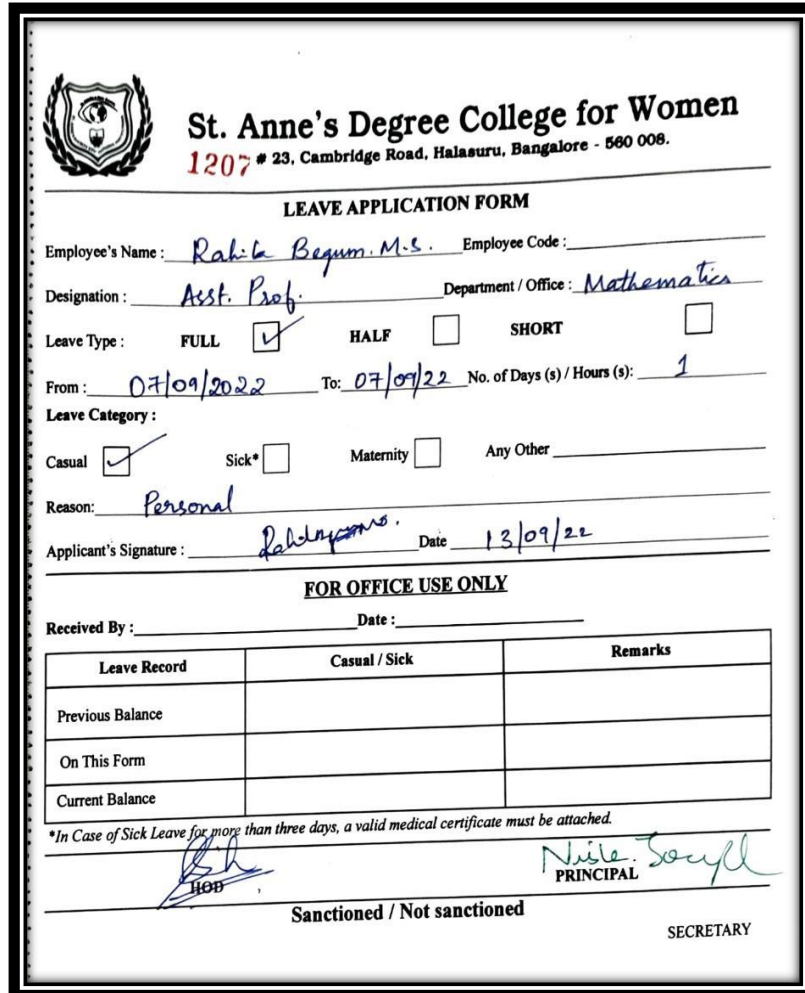 St. Anne's Degree College for Women
1207 # 23, Cambridge Road, Halasuru, Bangalore - 560 008.
LEAVE APPLICATION FORM
Employee's Name : Rahila Begum. M.S. Employee Code :
Designation : Asst. Prof. Department / Office : Mathematics
Leave Type : FULL ✓ HALF SHORT
From : 07/09/2022 To: 07/09/22 No. of Days (s) / Hours (s): 1
Leave Category :
Casual ✓ Sick* Maternity Any Other
Reason: Personal
Applicant's Signature : Date 13/09/22
FOR OFFICE USE ONLY
Received By : Date :
Leave Record Casual / Sick Remarks
Previous Balance
On This Form
Current Balance
*In Case of Sick Leave for more than three days, a valid medical certificate must be attached.
HOD PRINCIPAL
Sanctioned / Not sanctioned
SECRETARY